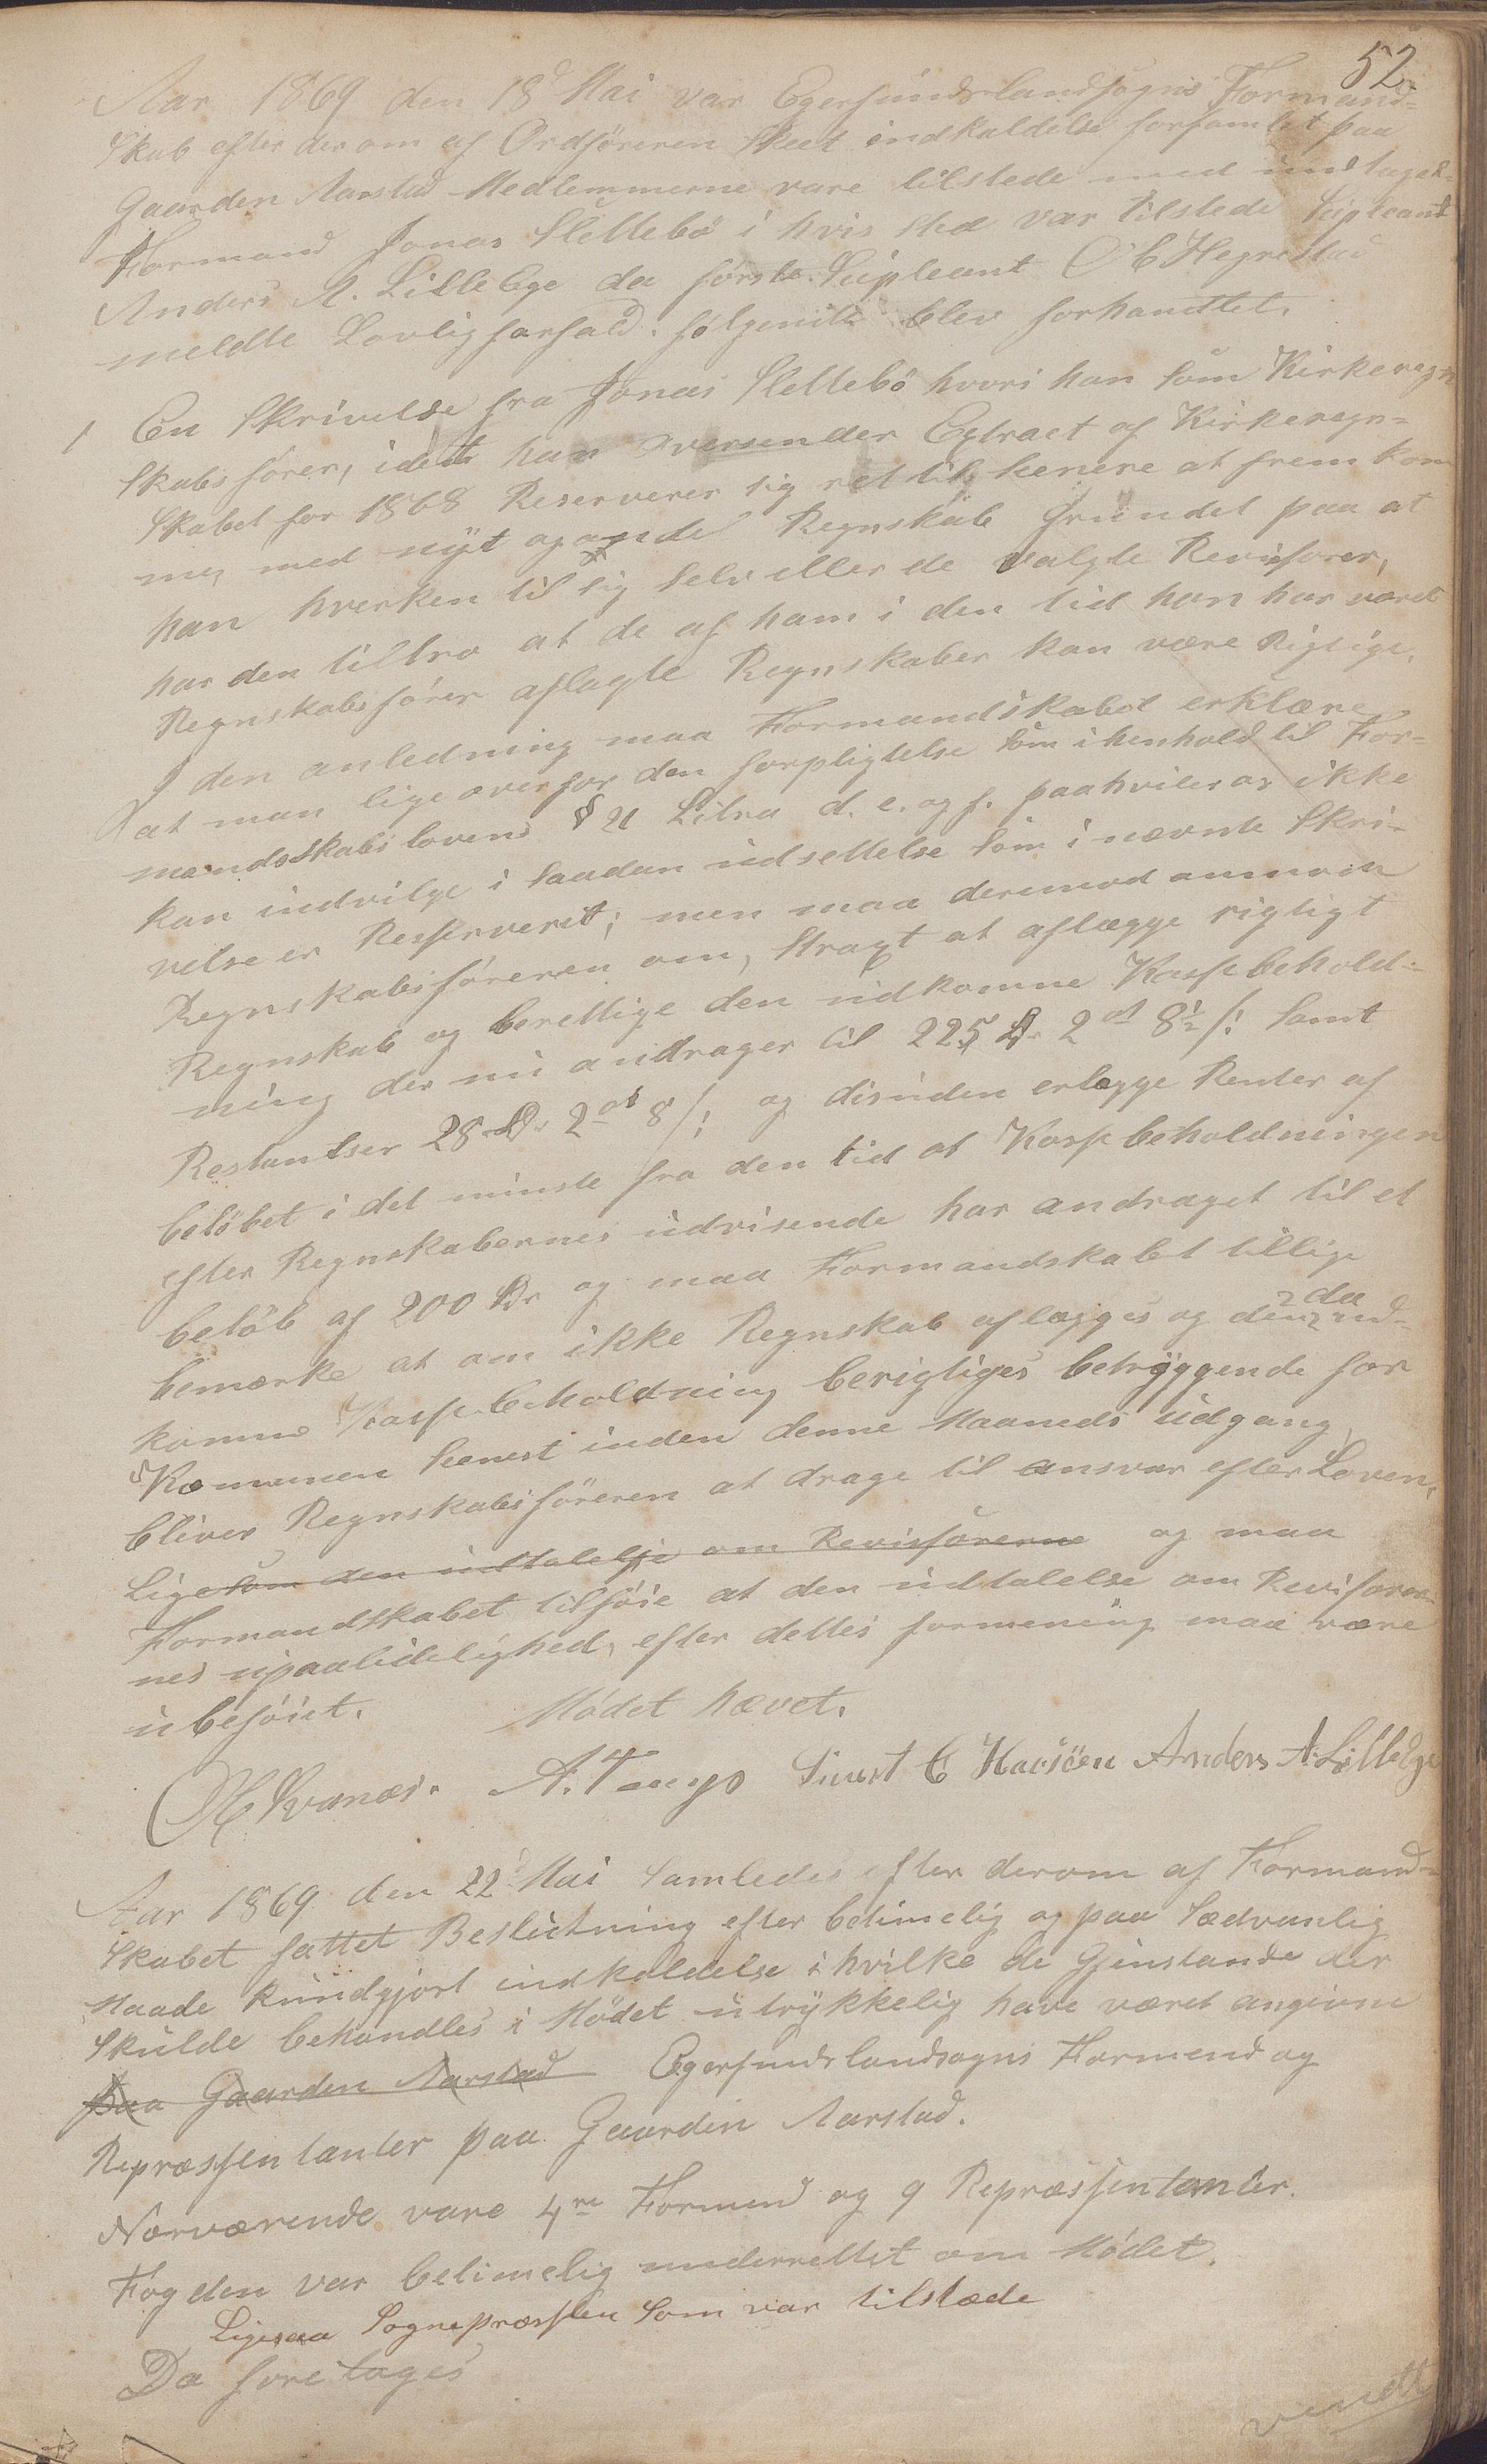 52
Aar 1869 den 18d Mai var Egersundslandsogns Formand-
skab efter derom af Ordföreren skeet indkaldelse forsamlet paa
Gaarden Aarstad Medlemmerne vare tilstede med undtagel-
Formand Jonas Slettebö i hvis sted var tilstede Supleant
Anders A. Lilleby da förste Supleant O E Hegrestad
meldte Lovligforfald. fölgende blev forhandtlet.
1 En Skrivelse fra Jonas Slettebö hvori han som Kirkeregn
skabsförer, idet han oversender Extract af Kirkeregn-
skabet for 1868 Reserverer sig ret til senere at fremkom
me, med nyt og andet Regnskab grundet paa at
han hverken til sig selv eller de valgte Revisorer,
har den tiltro at de af ham i den tid han har været
Regnskabsförer aflagte Regnskaber kan være Rigtige.
I den anledning maa Formandskabet erklære
at man ligeoverfor den forpligtelse som i henhold til For-
mandsskabslovens § 21 Litra d. e. og f. paahviler os ikke
kan indvilge i saadan udsettelse som i nævnte Skri-
velse er Reserveret; men maa derimod anmode
Regnskabsföreren om, straxt at aflægge rigtigt
Regnskab og berettige den udkomne Kassebehold-
ning der nu andrager til 225 D. 2 ort 8½ s: samt
Restantser 28 D. 2 ort 8 s: og disuden erlægge Renter af
belöbet i det minste fra den tid at Kassebeholdningen
efter Regnskabernes udvisende har andraget til et
belöb af 200 Dr og maa Formandskabet tillige
bemærke at om ikke Regnskab aflægges og den da ud-
komne Kassebeholdning berigtiges betryggende for
Komunen senest inden denne Maaneds udgang
bliver Regnskabsföreren at drage til ansvar efter Loven,
Ligesom den udtalelse om Revisorerne og maa
Formandskabet tilföie at den udtalelse om Revisorer-
nes upaalidelighed, efter dettes formening maa være
ubeföiet. Mödet hævet.
A. Tengs Sivert E Anders A. Lilleby
Aar 1869 den 22d Mai samledes efter derom af Formand-
skabet fattet Beslutning efter betimelig og paa sædvanlig
Maade kundgjort indkaldelse i hvilke de Gjenstande der
skulde behandles i Mödet utrykkelig have været angivne
paa Gaarden Aarstad Egersundslandsogns Formend og
Repræssentanter paa Gaarden Aarstad.
Nærværende vare 4re Formend og 9 Repræssentanter.
Fogden var betimelig underrettet om Mödet.
Ligesaa Sognepræsten som var tilstæde
Da foretages